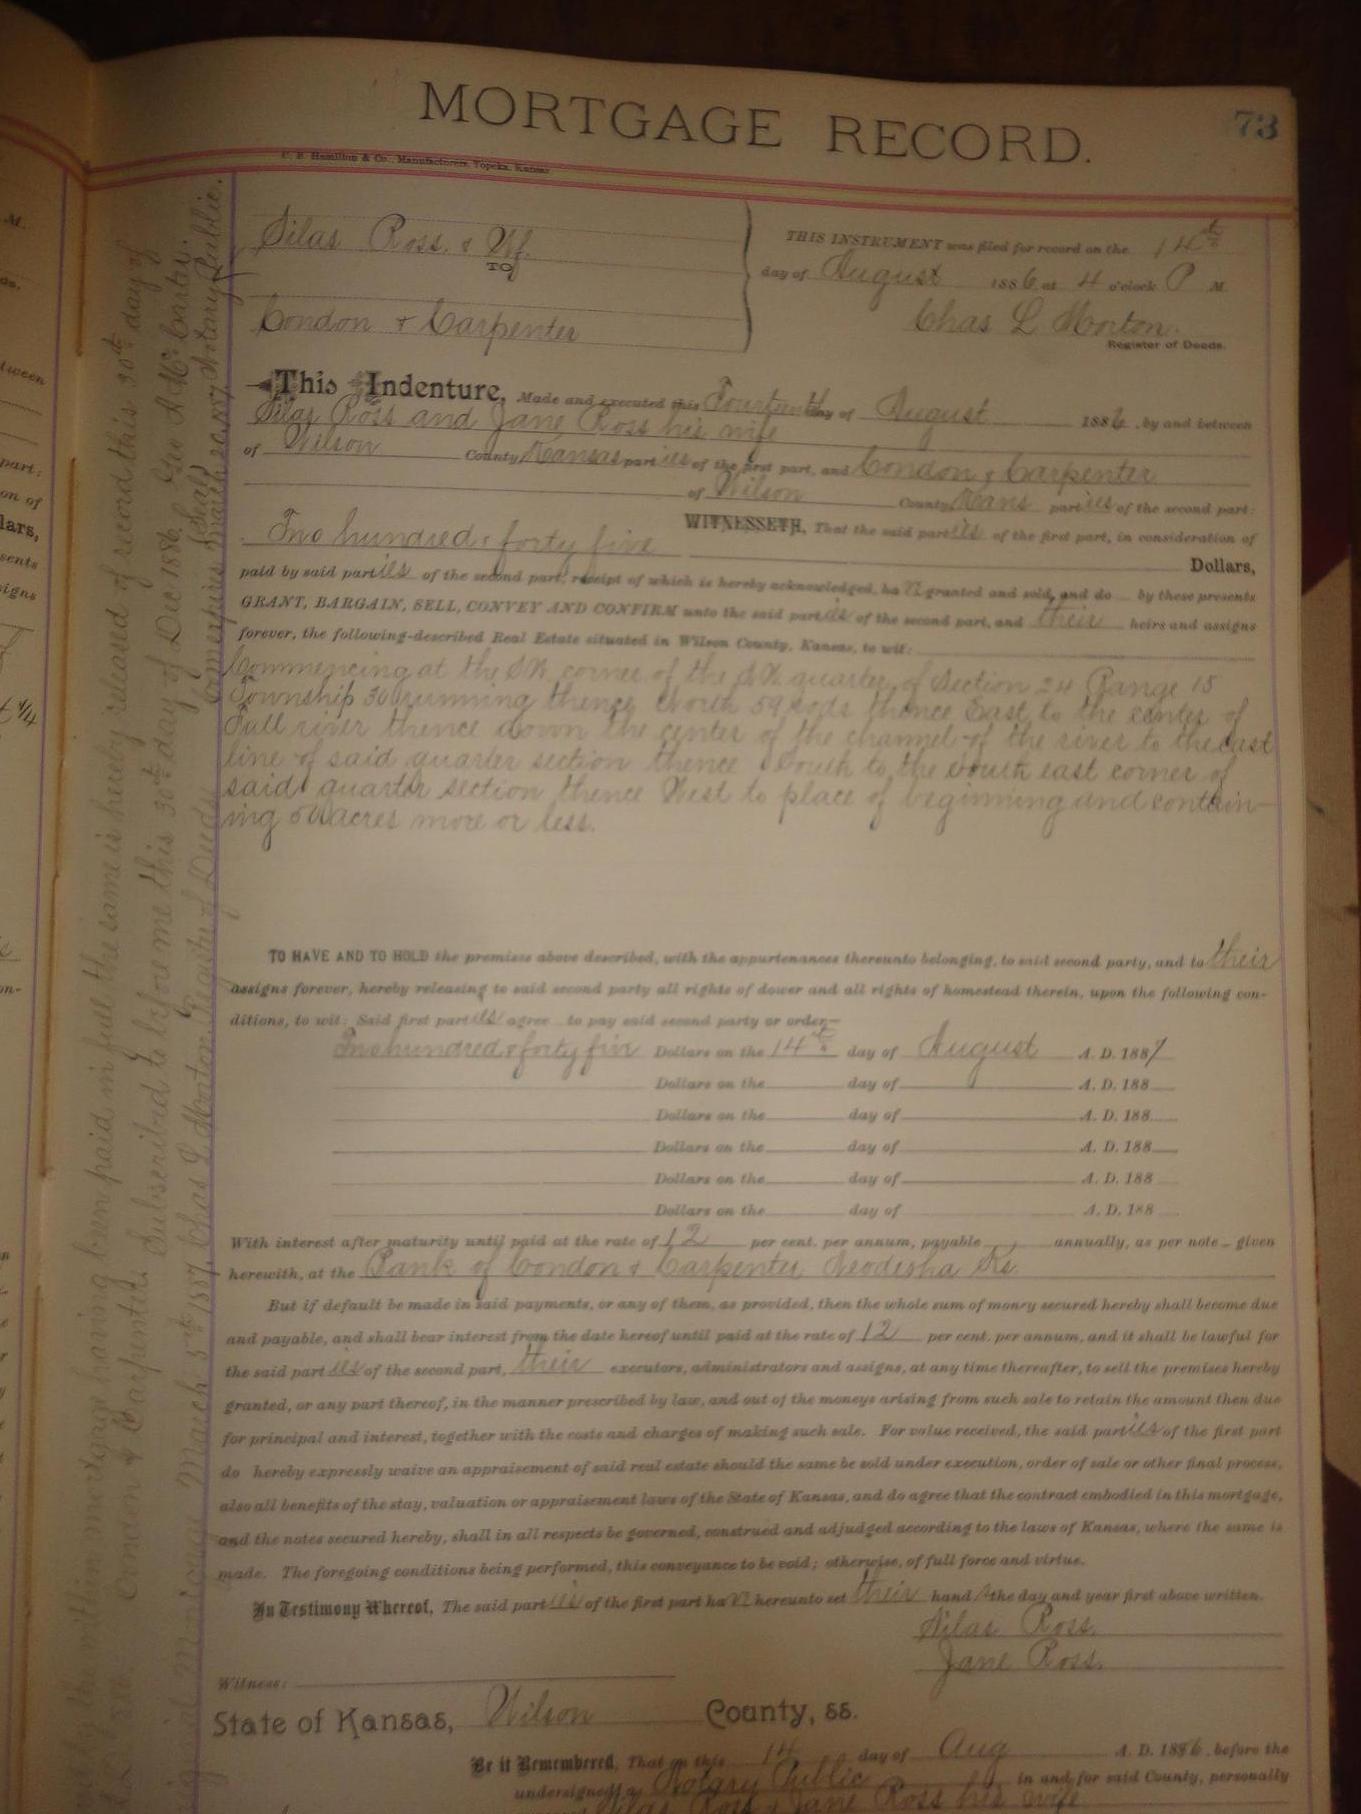 MORTGAGE RECORD.
73
C. B. Hamilton & Co., Manufacturers, Topeka, Kansas
Silas Ross & Wf.
TO
Condon & Carpenter
THIS INSTRUMENT was filed for record on the 14th
day of August 1886 at 4 o'clock P M.
Chas L Morton
Register of Deeds.
This Indenture, Made and executed this Fourteenth day of August 1886, by and between
Silas Ross and Jane Ross his wife
of Wilson County Kansas parties of the first part, and Condon & Carpenter
of Wilson County Kans parties of the second part:
WITNESSETH, That the said parties of the first part, in consideration of
Two hundred & forty five Dollars,
paid by said parties of the second part, receipt of which is hereby acknowledged, have granted and sold, and do by these presents
GRANT, BARGAIN, SELL, CONVEY AND CONFIRM unto the said parties of the second part, and their heirs and assigns
forever, the following-described Real Estate situated in Wilson County, Kansas, to wit:
Commencing at the corner of the quarter of Section 24 Range 15
Township 30 running thence North 59 rods thence East to the center of
Fall river thence down the center of the channel of the river to the east
line of said quarter section thence South to the South east corner of
said quarter section thence West to place of beginning and contain-
ing acres more or less.
TO HAVE AND TO HOLD the premises above described, with the appurtenances thereunto belonging, to said second party, and to their
assigns forever, hereby releasing to said second party all rights of dower and all rights of homestead therein, upon the following con-
ditions, to wit: Said first parties agree to pay said second party or order—
Two hundred & forty five Dollars on the 14th day of August A. D. 1887
Dollars on the day of A. D. 188
Dollars on the day of A. D. 188
Dollars on the day of A. D. 188
Dollars on the day of A. D. 188
Dollars on the day of A. D. 188
With interest after maturity until paid at the rate of 12 per cent. per annum, payable annually, as per note given
herewith, at the Bank of Condon & Carpenter Neodesha Ks.
But if default be made in said payments, or any of them, as provided, then the whole sum of money secured hereby shall become due
and payable, and shall bear interest from the date hereof until paid at the rate of 12 per cent. per annum, and it shall be lawful for
the said parties of the second part, their executors, administrators and assigns, at any time thereafter, to sell the premises hereby
granted, or any part thereof, in the manner prescribed by law, and out of the moneys arising from such sale to retain the amount then due
for principal and interest, together with the costs and charges of making such sale. For value received, the said parties of the first part
do hereby expressly waive an appraisement of said real estate should the same be sold under execution, order of sale or other final process,
also all benefits of the stay, valuation or appraisement laws of the State of Kansas, and do agree that the contract embodied in this mortgage,
and the notes secured hereby, shall in all respects be governed, construed and adjudged according to the laws of Kansas, where the same is
made. The foregoing conditions being performed, this conveyance to be void; otherwise, of full force and virtue.
In Testimony Whereof, The said parties of the first part have hereunto set their hands the day and year first above written.
Silas Ross.
Jane Ross.
Witness:
State of Kansas, Wilson County, ss.
Be it Remembered, That on this 14 day of Aug A. D. 1886 before the
undersigned a Notary Public in and for said County, personally
Silas Ross & Jane Ross his wife
the within mortgage having been paid in full the same is hereby released of record this 30th day of
Condon & Carpenter
Subscribed to before me this 30th day of Dec 1886 Geo A McCarter
(Seal) Com expires March 20 1887 Notary Public.
March 5th 1887 Chas L Morton Register of Deeds